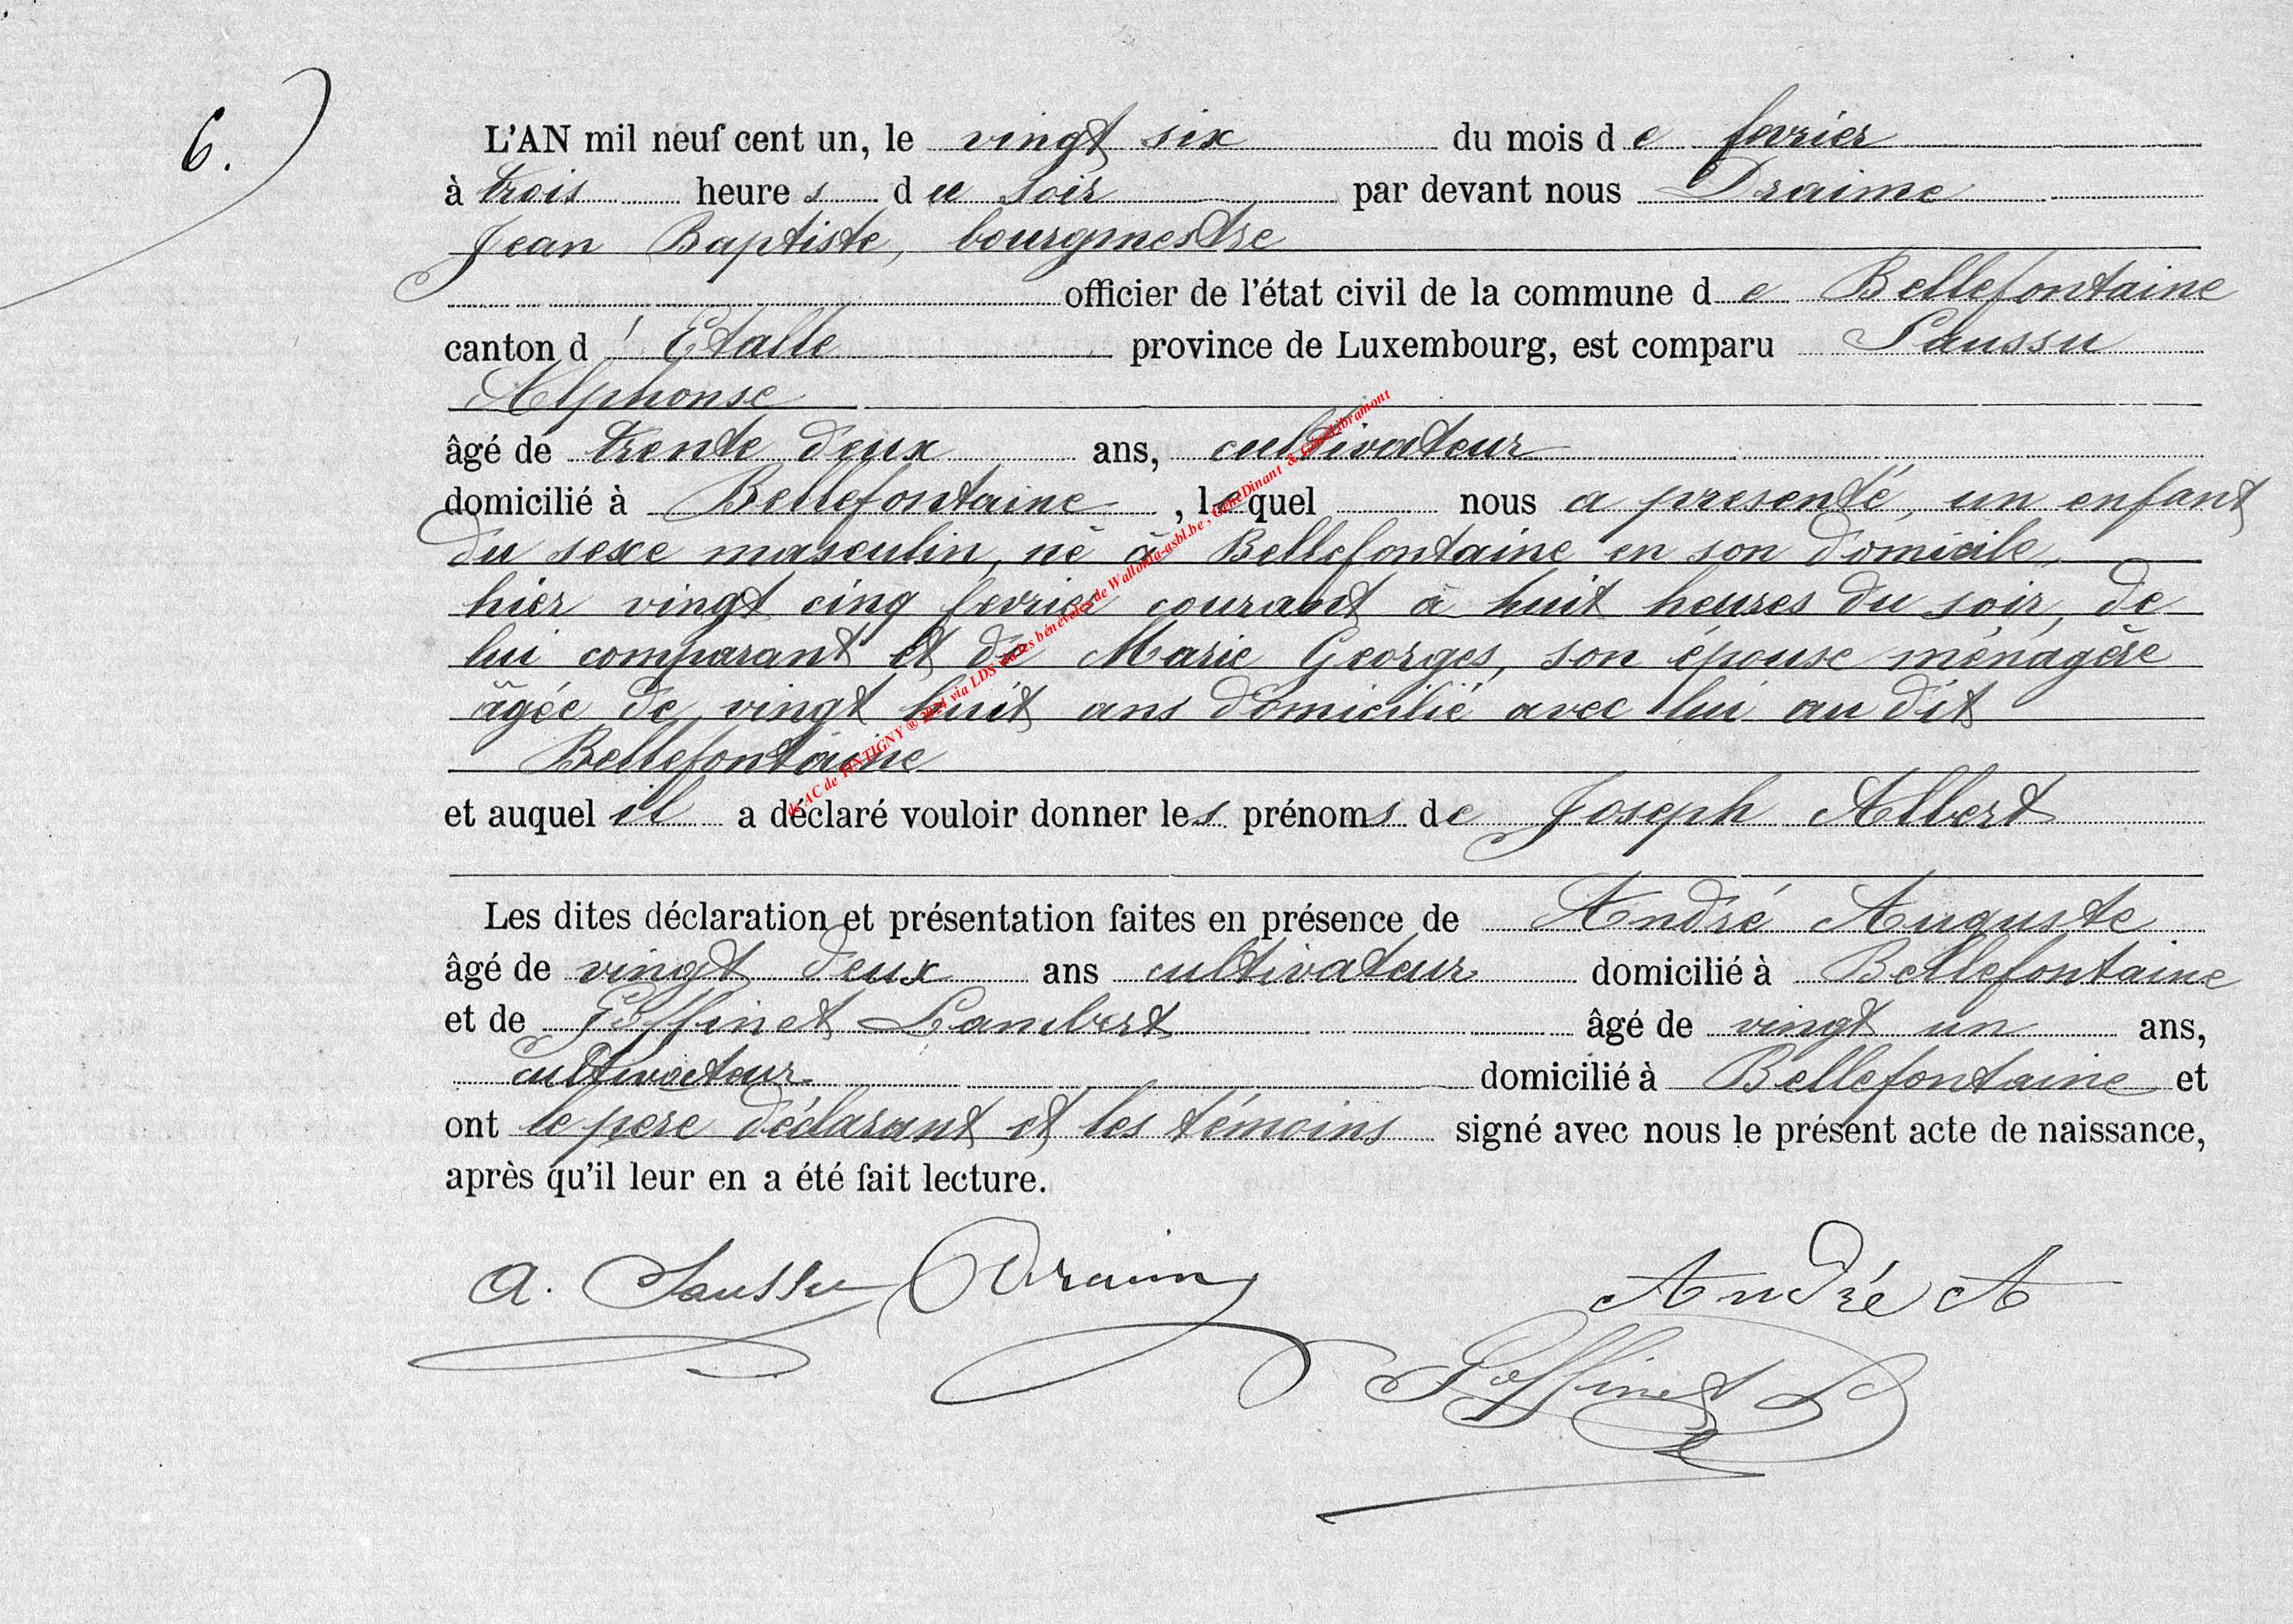 6.
L'AN mil neuf cent un, le vingt six du mois de fevrier
à trois heures du soir par devant nous Draime
Jean Baptiste, bourgmestre
officier de l'état civil de la commune de Bellefontaine
canton d'Etalle province de Luxembourg, est comparu Saussu
Alphonse
âgé de trente deux ans, cultivateur
domicilié à Bellefontaine, lequel nous a presenté, un enfant
du sexe masculin, né à Bellefontaine en son domicile,
hier vingt cinq fevrier courant à huit heures du soir, de
lui comparant et de Marie Georges, son épouse ménagère
âgée de vingt huit ans domicilié avec lui au dit
Bellefontaine
et auquel il a déclaré vouloir donner les prénoms de Joseph Albert
Les dites déclaration et présentation faites en présence de André Auguste
âgé de vingt deux ans cultivateur domicilié à Bellefontaine
et de Goffinet Lambert âgé de vingt un ans,
cultivateur domicilié à Bellefontaine et
ont le pere déclarant et les témoins signé avec nous le présent acte de naissance,
après qu'il leur en a été fait lecture.
A. Saussu Draime André A
Goffinet L
de AC de TINTIGNY ® 2024 via LDS via les bénévoles de Wallonia-asbl.be, GénéDinant & GénéLibramont